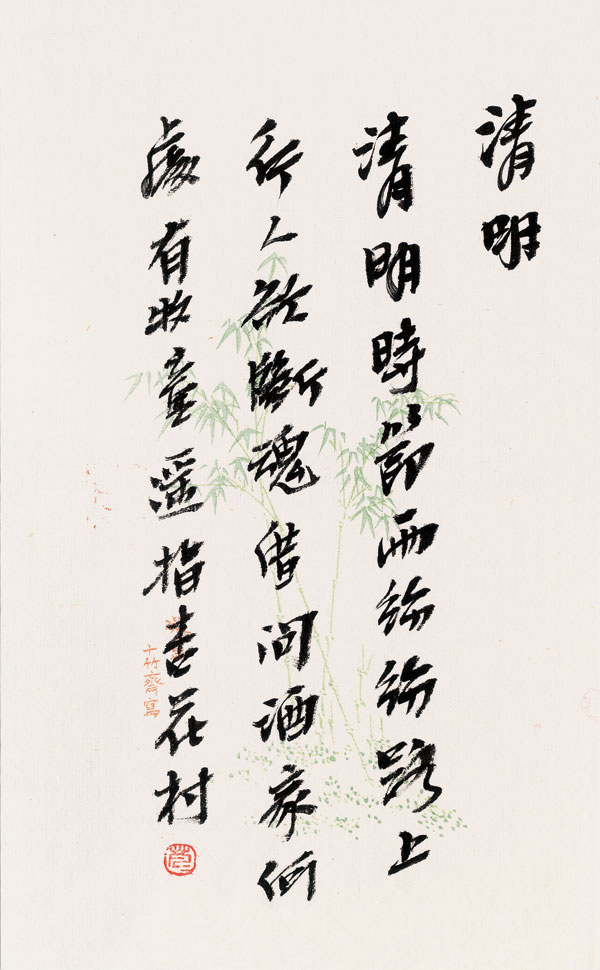 清明
清明時節雨紛紛路上
行人欲斷魂借問酒家何
處有牧童遥指杏花村
十竹齋寫